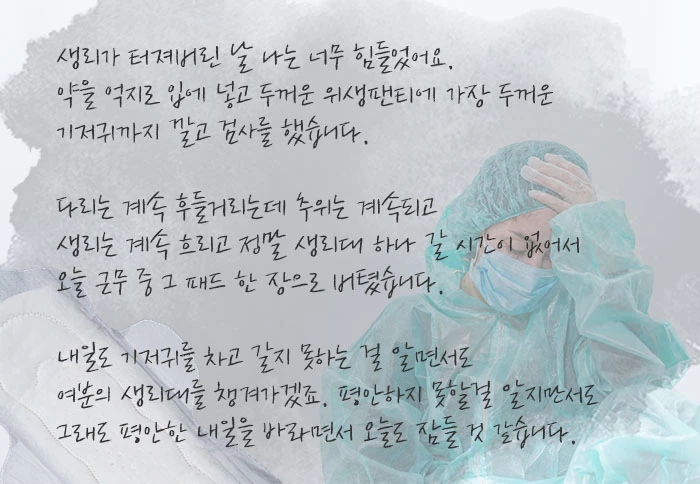 생리가 터져버린 날 나는 너무 힘들었어요.
약을 억지로 입에 넣고 두꺼운 위생팬티에 가장 두꺼운
기저귀까지 깔고 검사를 했습니다.
다리는 계속 후들거리는데 추위는 계속되고
생리는 계속 흐리고 정말 생리대 하나 갈 시간이 없어서
오늘 근무 중 그 패드 한 장으로 버텼습니다.
내일도 기저귀를 차고 갈지 못하는 걸 알면서도
여분의 생리대를 챙겨가겠죠. 평안하지 못할걸 알지만서도
그래도 평안한 내일을 바라면서 오늘도 잠들 것 같습니다.